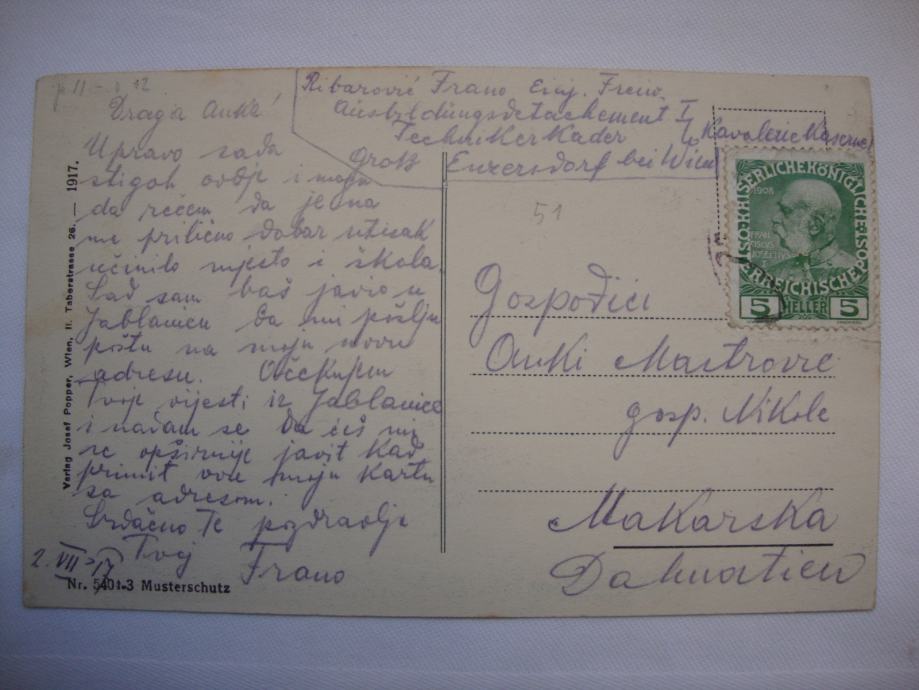 Ribarović Frano Einj. Freiw.
Ausbildungsdetachement I
Techniker Kader (Kavalerie Kaserne
Groß Enzersdorf bei Wien
Draga Anka!
Upravo sada
stigoh ovdje i mogu
da rečem da je na
me prilično dobar utisak
učinilo mjesto i škola.
Sad sam baš javio u
Jablanicu da mi pošlju
poštu na moju novu
adresu. Očekujem
Tvoje vijesti iz Jablanice
i nadam se da ćeš mi
se opširnije javit kad
primit ovu moju kartu
sa adresom.
Srdačno Te pozdravlja
Tvoj
Frano
2. VII 17
51
Gospođici
Anki Mastrović
gosp. Nikole
Makarska
Dalmatien
KAISERLICHE KÖNIGLICHE
ÖSTERREICHISCHE POST
1908
FRANCISCUS JOSEPHUS
5 HELLER 5
Verlag Josef Popper, Wien, II. Taborstrasse 26. — 1917.
Nr. 5401-3 Musterschutz